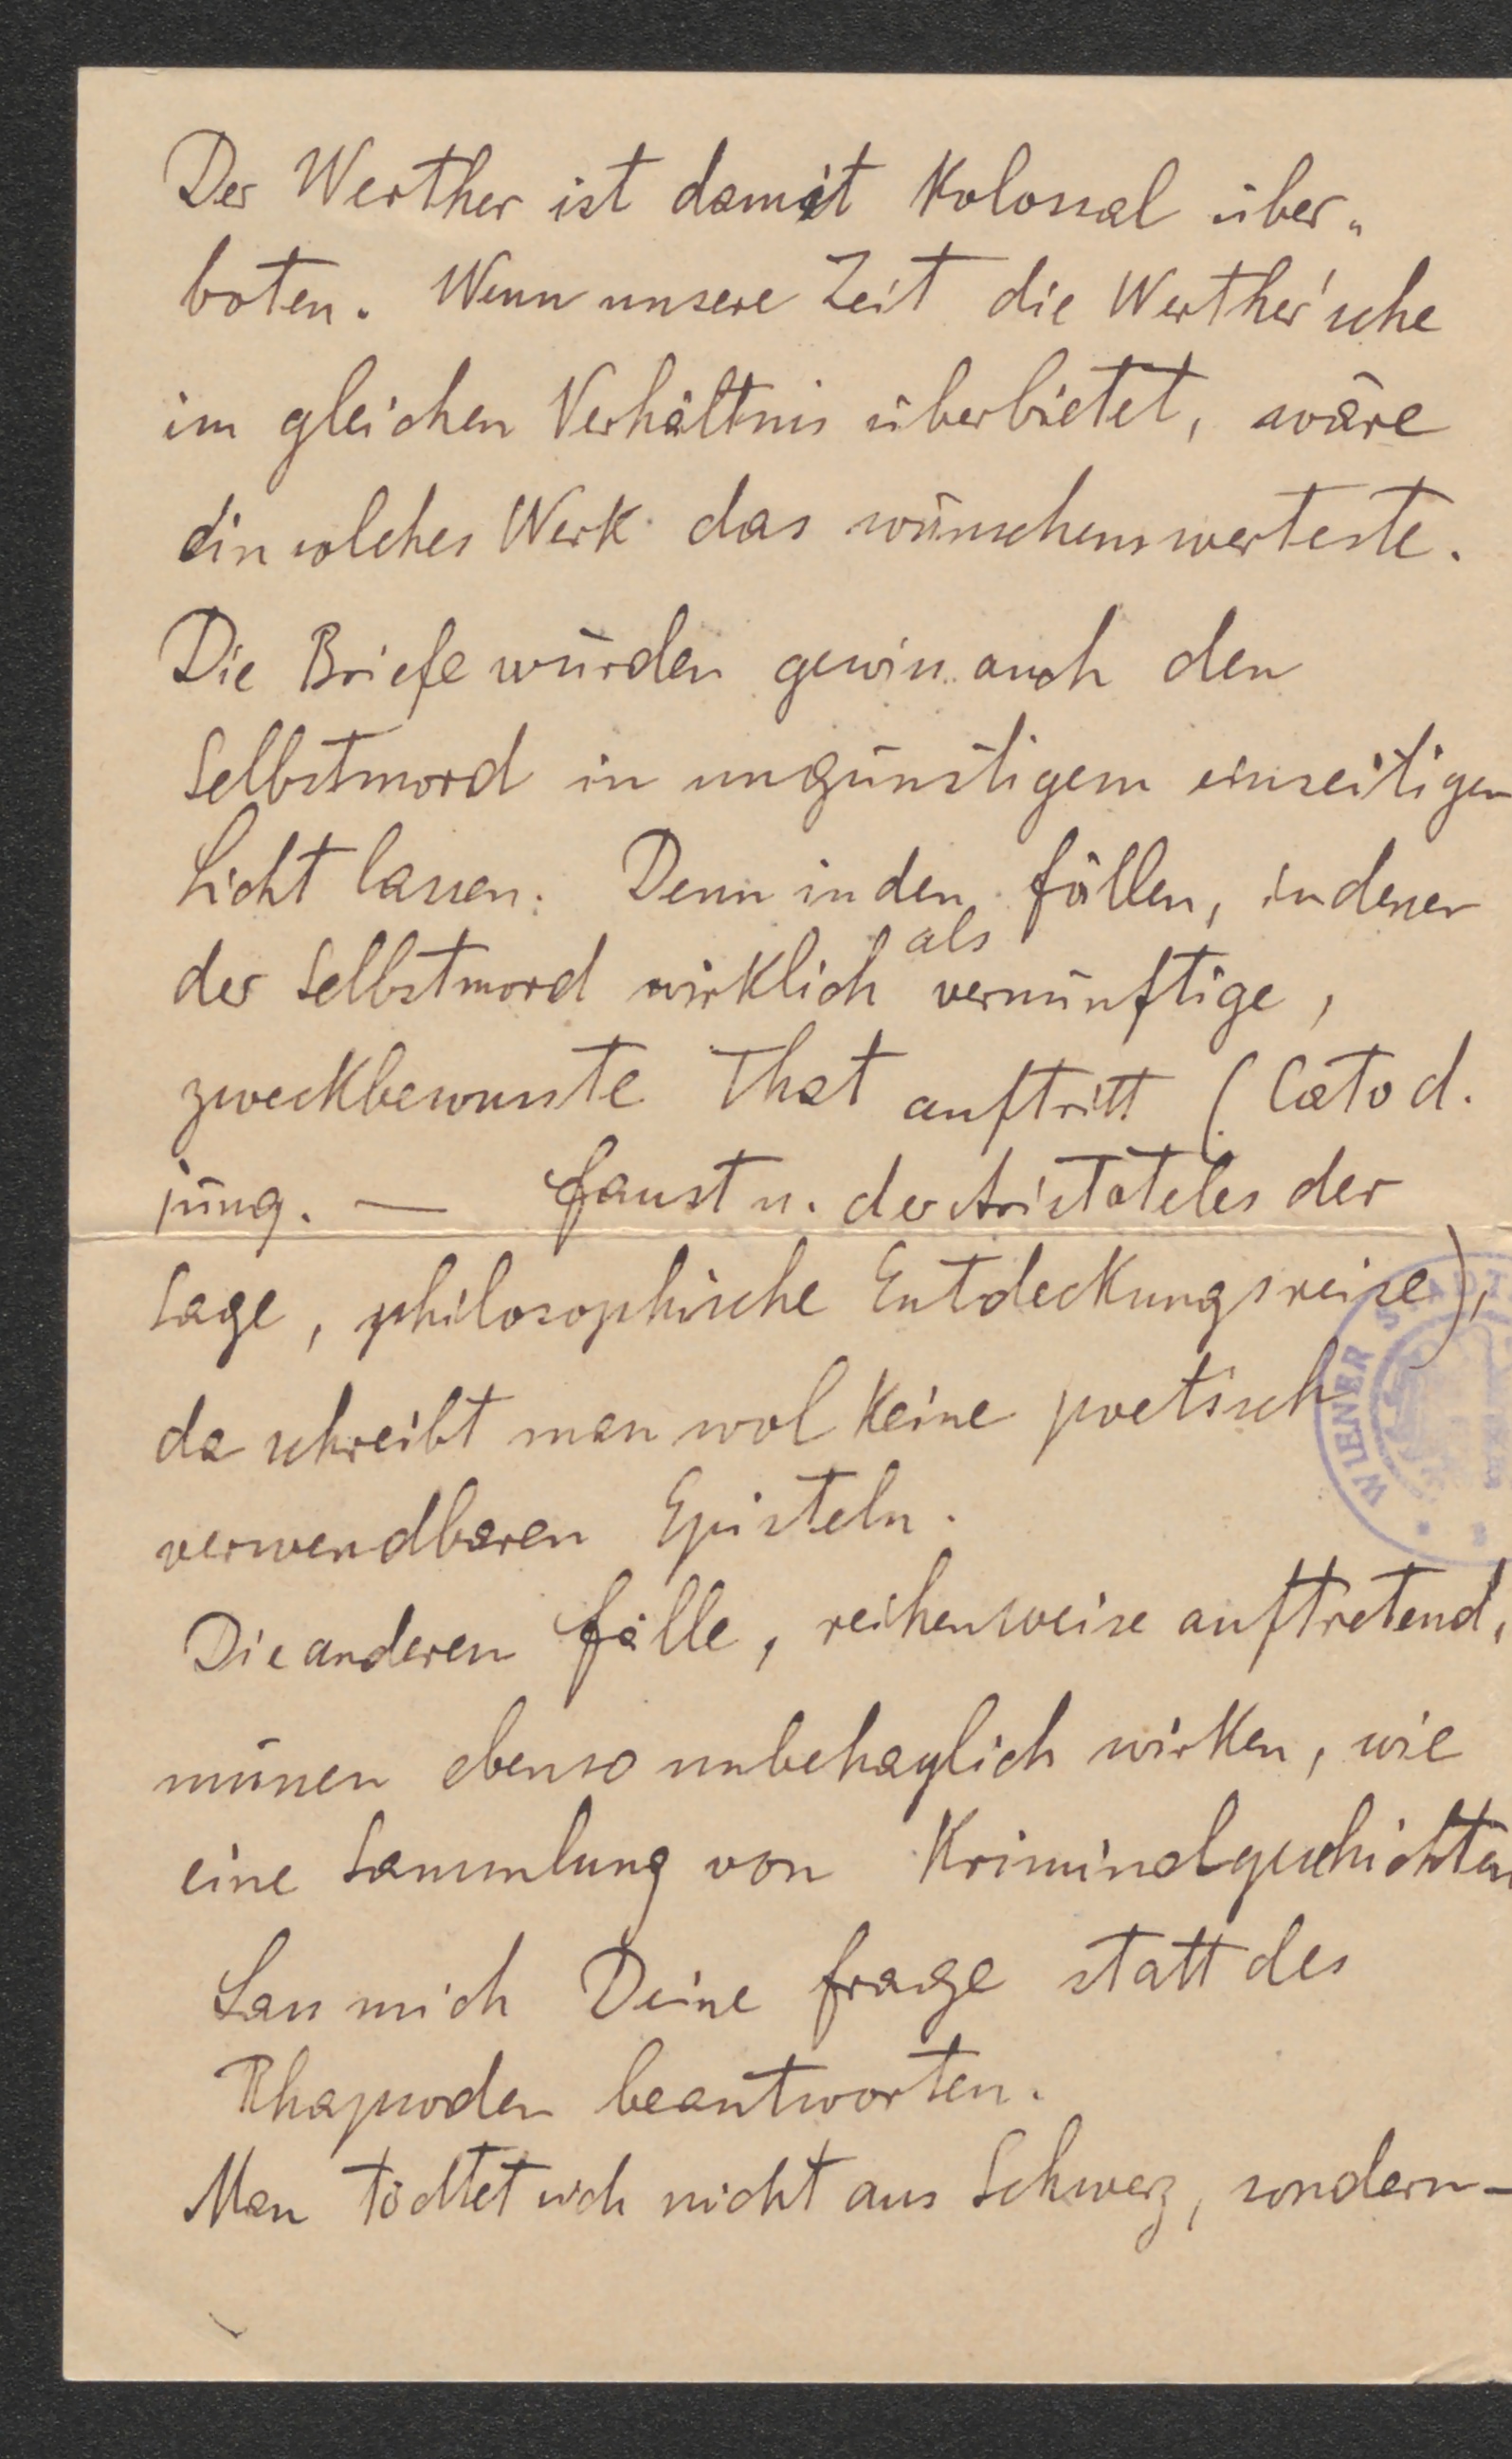 Der Werther ist damit kolossal über„
boten. Wenn unsere Zeit die Werther'sche
im gleichen Verhältnis überbietet, wäre
ein solches Werk das wünschenswerteste.
Die Briefe würden gewiss auch den
Selbstmord in ungünstigem einseitigen
Licht lassen. Denn in den Fällen, in denen
der Selbstmord wirklich als vernünftige,
zweckbewusste That auftritt (Cato d.
jüng. — Faust u. der Aristoteles der
Sage, philosophische Entdeckungsreise),
da schreibt man wol keine poetisch
verwendbaren Episteln.
Die anderen Fälle, reihenweise auftretend,
müssen ebenso unbehaglich wirken, wie
eine Sammlung von Kriminalgeschichten
Lass mich Deine Frage statt des
Rhapsoden beantworten.
Man tödtet sich nicht aus Schmerz, sondern –
WIENER